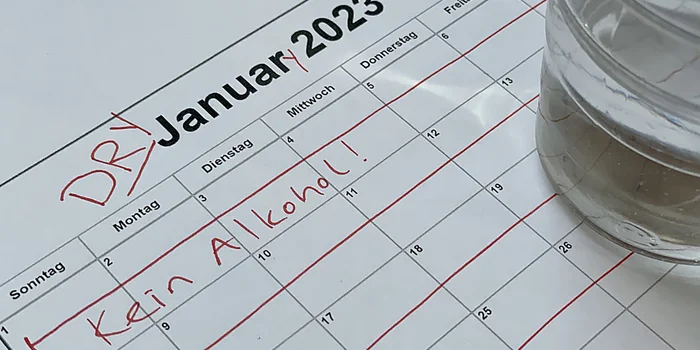 DRY January 2023
Sonntag Montag Dienstag Mittwoch Donnerstag
1 2 3 4 5 6
Kein Alkohol!
9 10 11 12 13
17 18 19
25 26